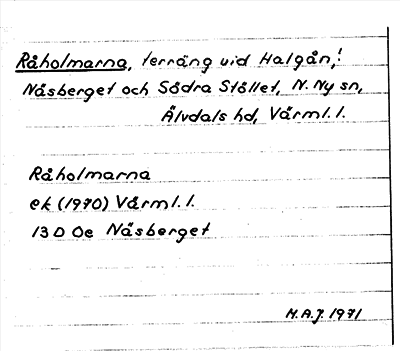 Råholmarna, terräng vid Halgån,!
Näsberget och Södra Stöllet, N. Ny sn,
Älvdals hd, Värml. l.
Råholmarna
ek (1970) Värml. l.
13 D Oe Näsberget
H.A.J. 1971